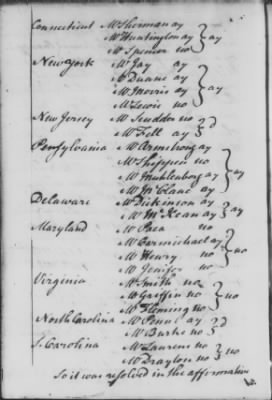 Connecticut Mr Sherman ay
Mr Huntington ay } ay
Mr Spencer no
New York Mr Jay ay
Mr Duane ay } ay
Mr Morris ay
Mr Lewis no
New Jersey Mr Scudder no } d
Mr Fell ay
Pensylvania Mr Armstrong ay
Mr Shippen no } ay
Mr Muhlenberg ay
Mr McClane ay
Delaware Mr Dickinson ay } ay
Mr McKean ay
Maryland Mr Paca no
Mr Carmichael ay } no
Mr Henry no
Mr Jenifer no
Virginia Mr Smith no
Mr Griffin no } no
Mr Fleming no
North Carolina Mr Penn ay } d
Mr Burke no
S. Carolina Mr Laurens no } no
Mr Drayton no
So it was resolved in the affirmative